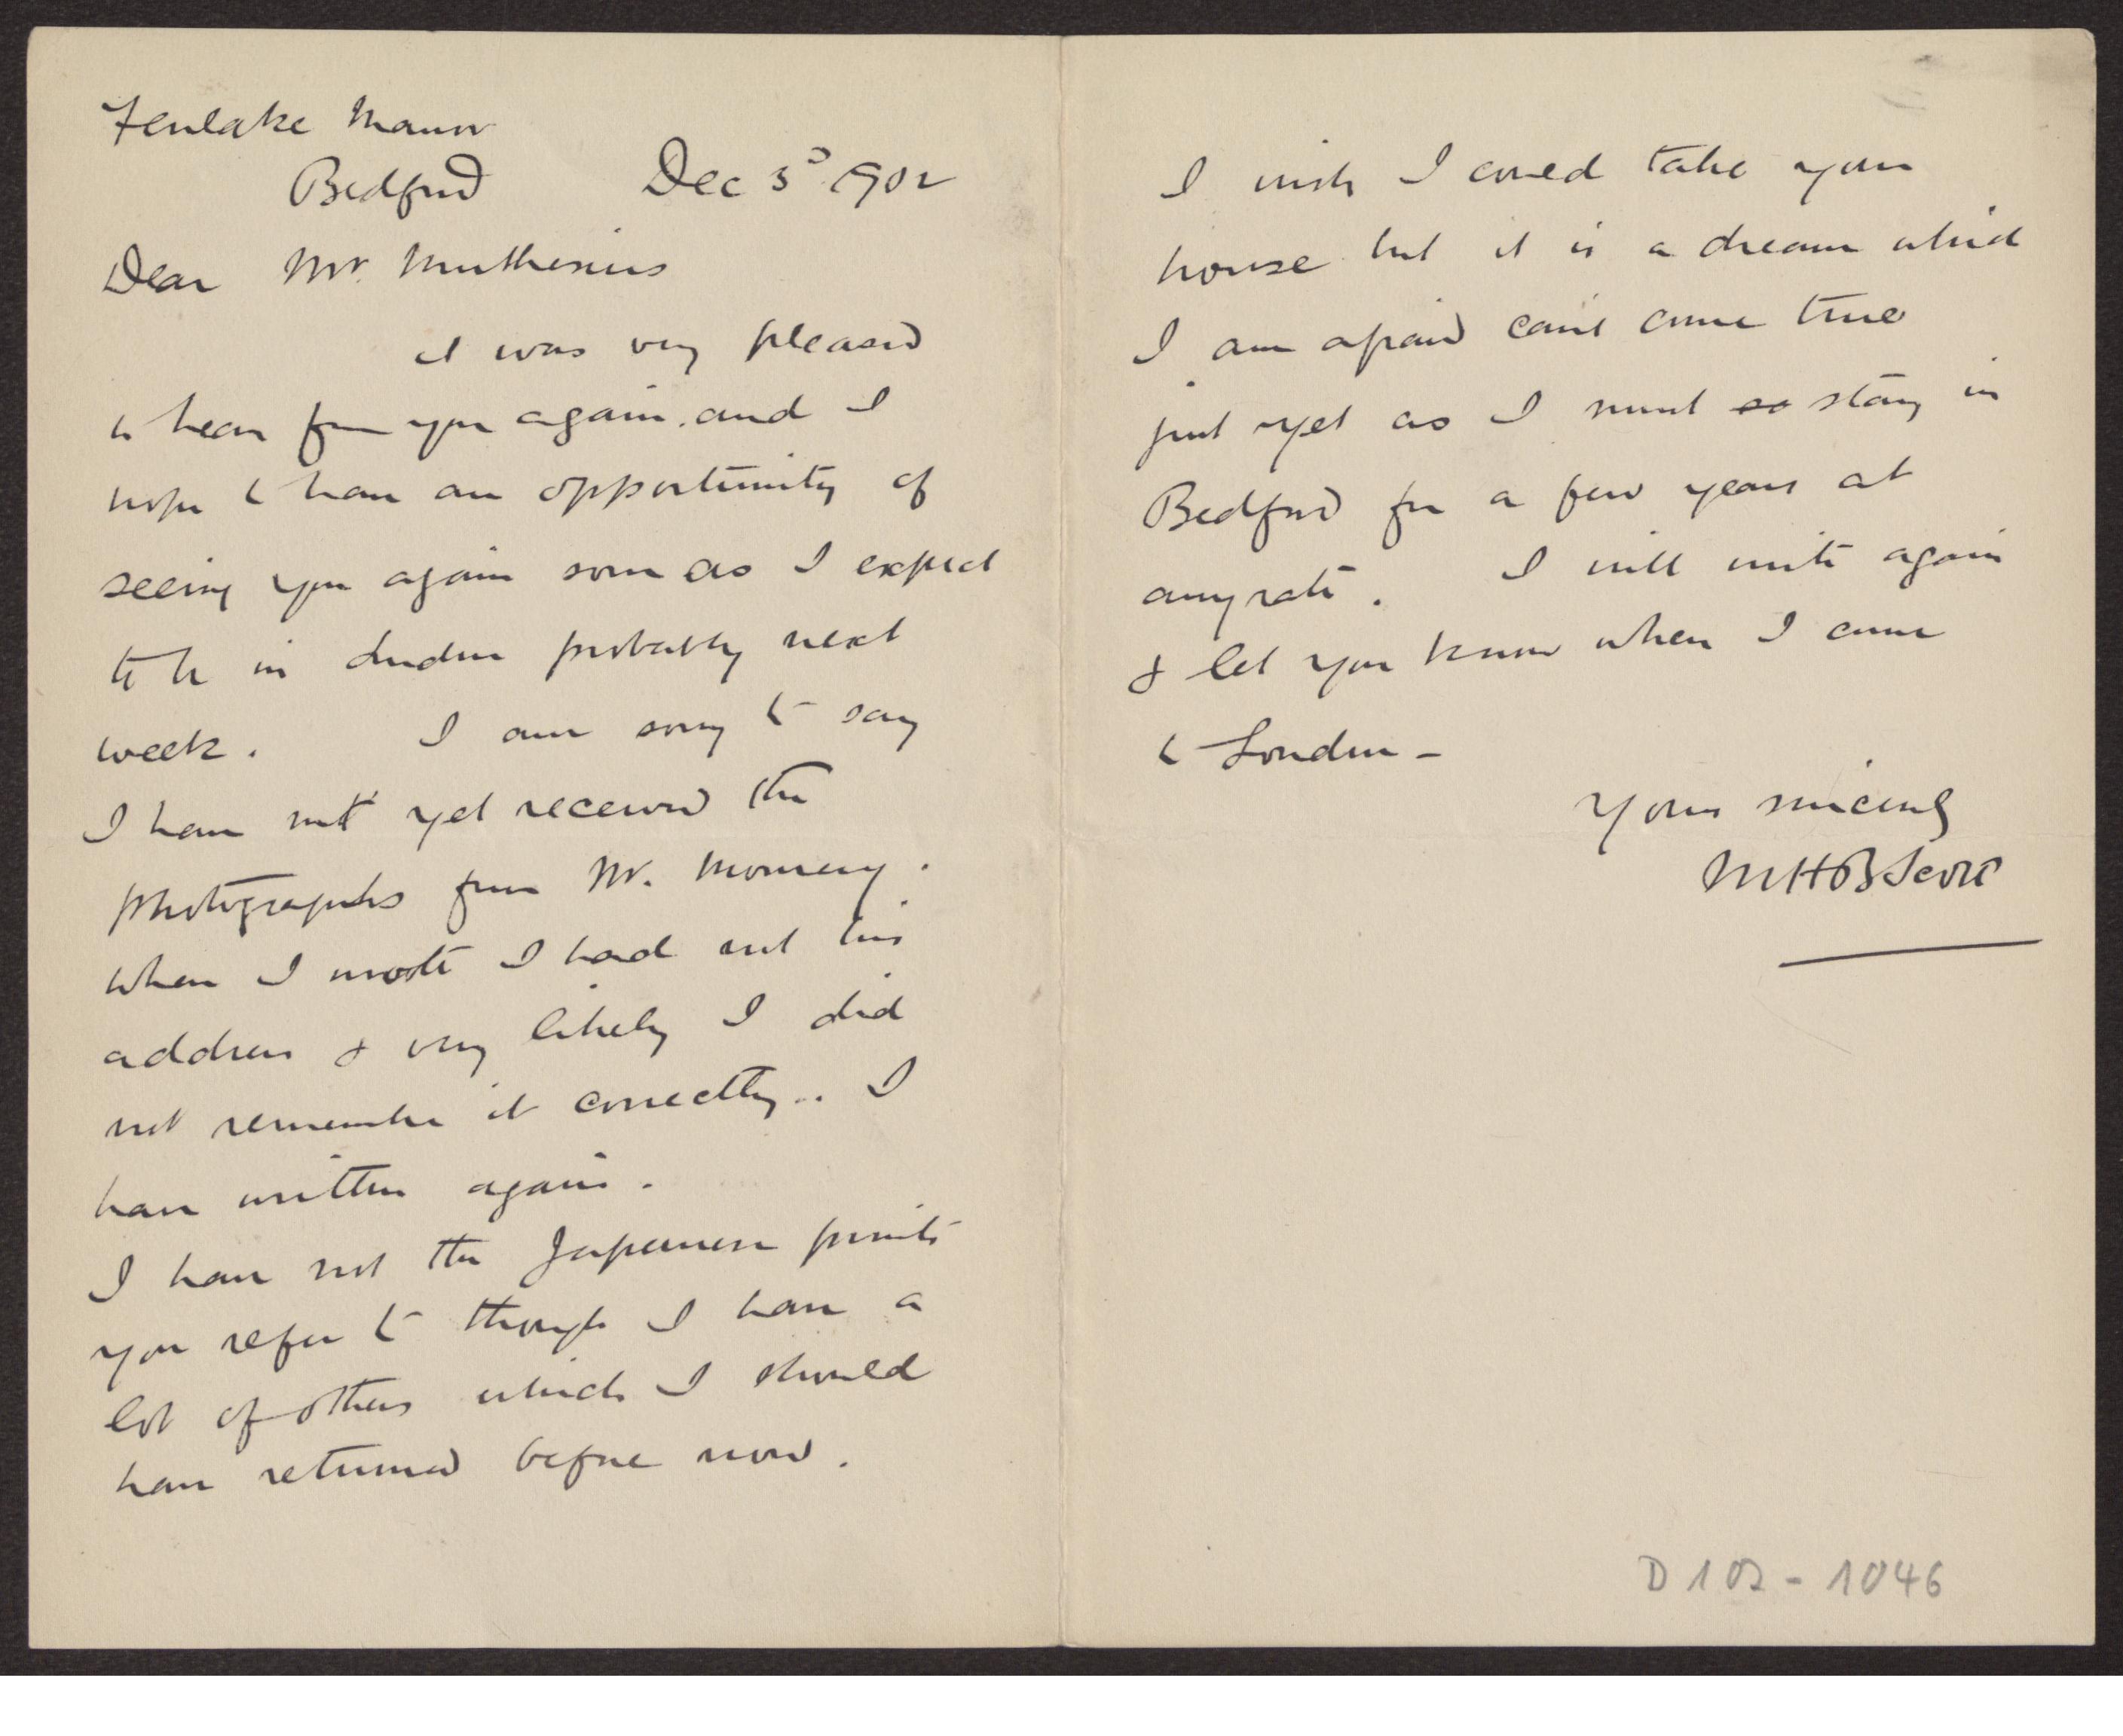 Fenlake Manor
Bedford Dec 3d 1902
Dear Mr. Muthesius
I was very pleased
to hear from you again, and I
hope to have an opportunity of
seeing you again soon as I expect
to be in London probably next
week. I am sorry to say
I have not yet received the
photographs from Mr.
When I wrote I had not his
address & very likely I did
not remember it correctly.. I
have written again.
I have not the Japanese prints
you refer to though I have a
lot of others which I should
have returned before now.
I wish I could take your
house but it is a dream which
I am afraid can't come true
just yet as I must so stay in
Bedford for a few years at
any rate. I will write again
& let you know when I come
to London -
Yours sincerely
MHBScott
D 102 - 1046